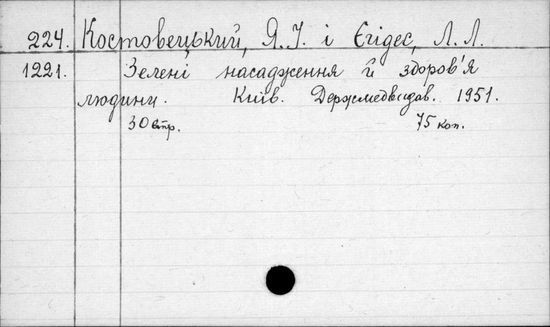 224. Костовецький, Я.І. і Єгідес, Л.Л.
1221. Зелені насадження й здоров'я
людини. Київ. Держмедвидав. 1951.
30 стр. 75 коп.